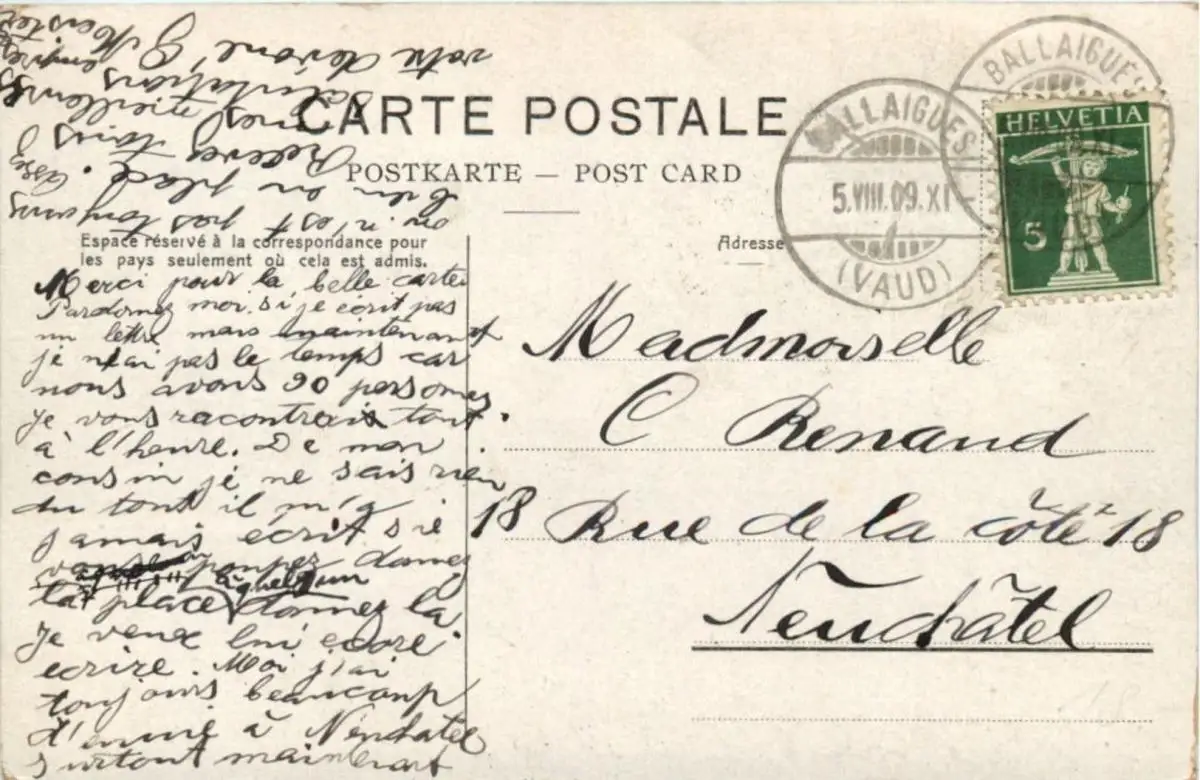 CARTE POSTALE
POSTKARTE — POST CARD
Espace réservé à la correspondance pour
les pays seulement où cela est admis.
Adresse
BALLAIGUES
5.VIII.09.XI-
(VAUD)
BALLAIGUES
HELVETIA
5
Merci pour la belle carte
Pardonnez moi si je écrit pas
un lettre mais maintenant
je n'ai pas le temps car
nous avons 90 personnes
je vous racontrai tout
à l'heure. De mon
cousin je ne sais rien
du tout il m'a
jamais écrit si
vous pouvez donnez
à quelqun
la place donnez la
je veux lui
ecrire. Moi j'ai
toujours beaucoup
d'ennui à Neuchatel
surtout maintenant
on n'est pas toujours
bien en place. Assez
Recevez tous
mes meilleures
salutations empressé
votre dévoué G Meister
Madmoiselle
C Renaud
18 Rue de la côte 18
Neuchâtel